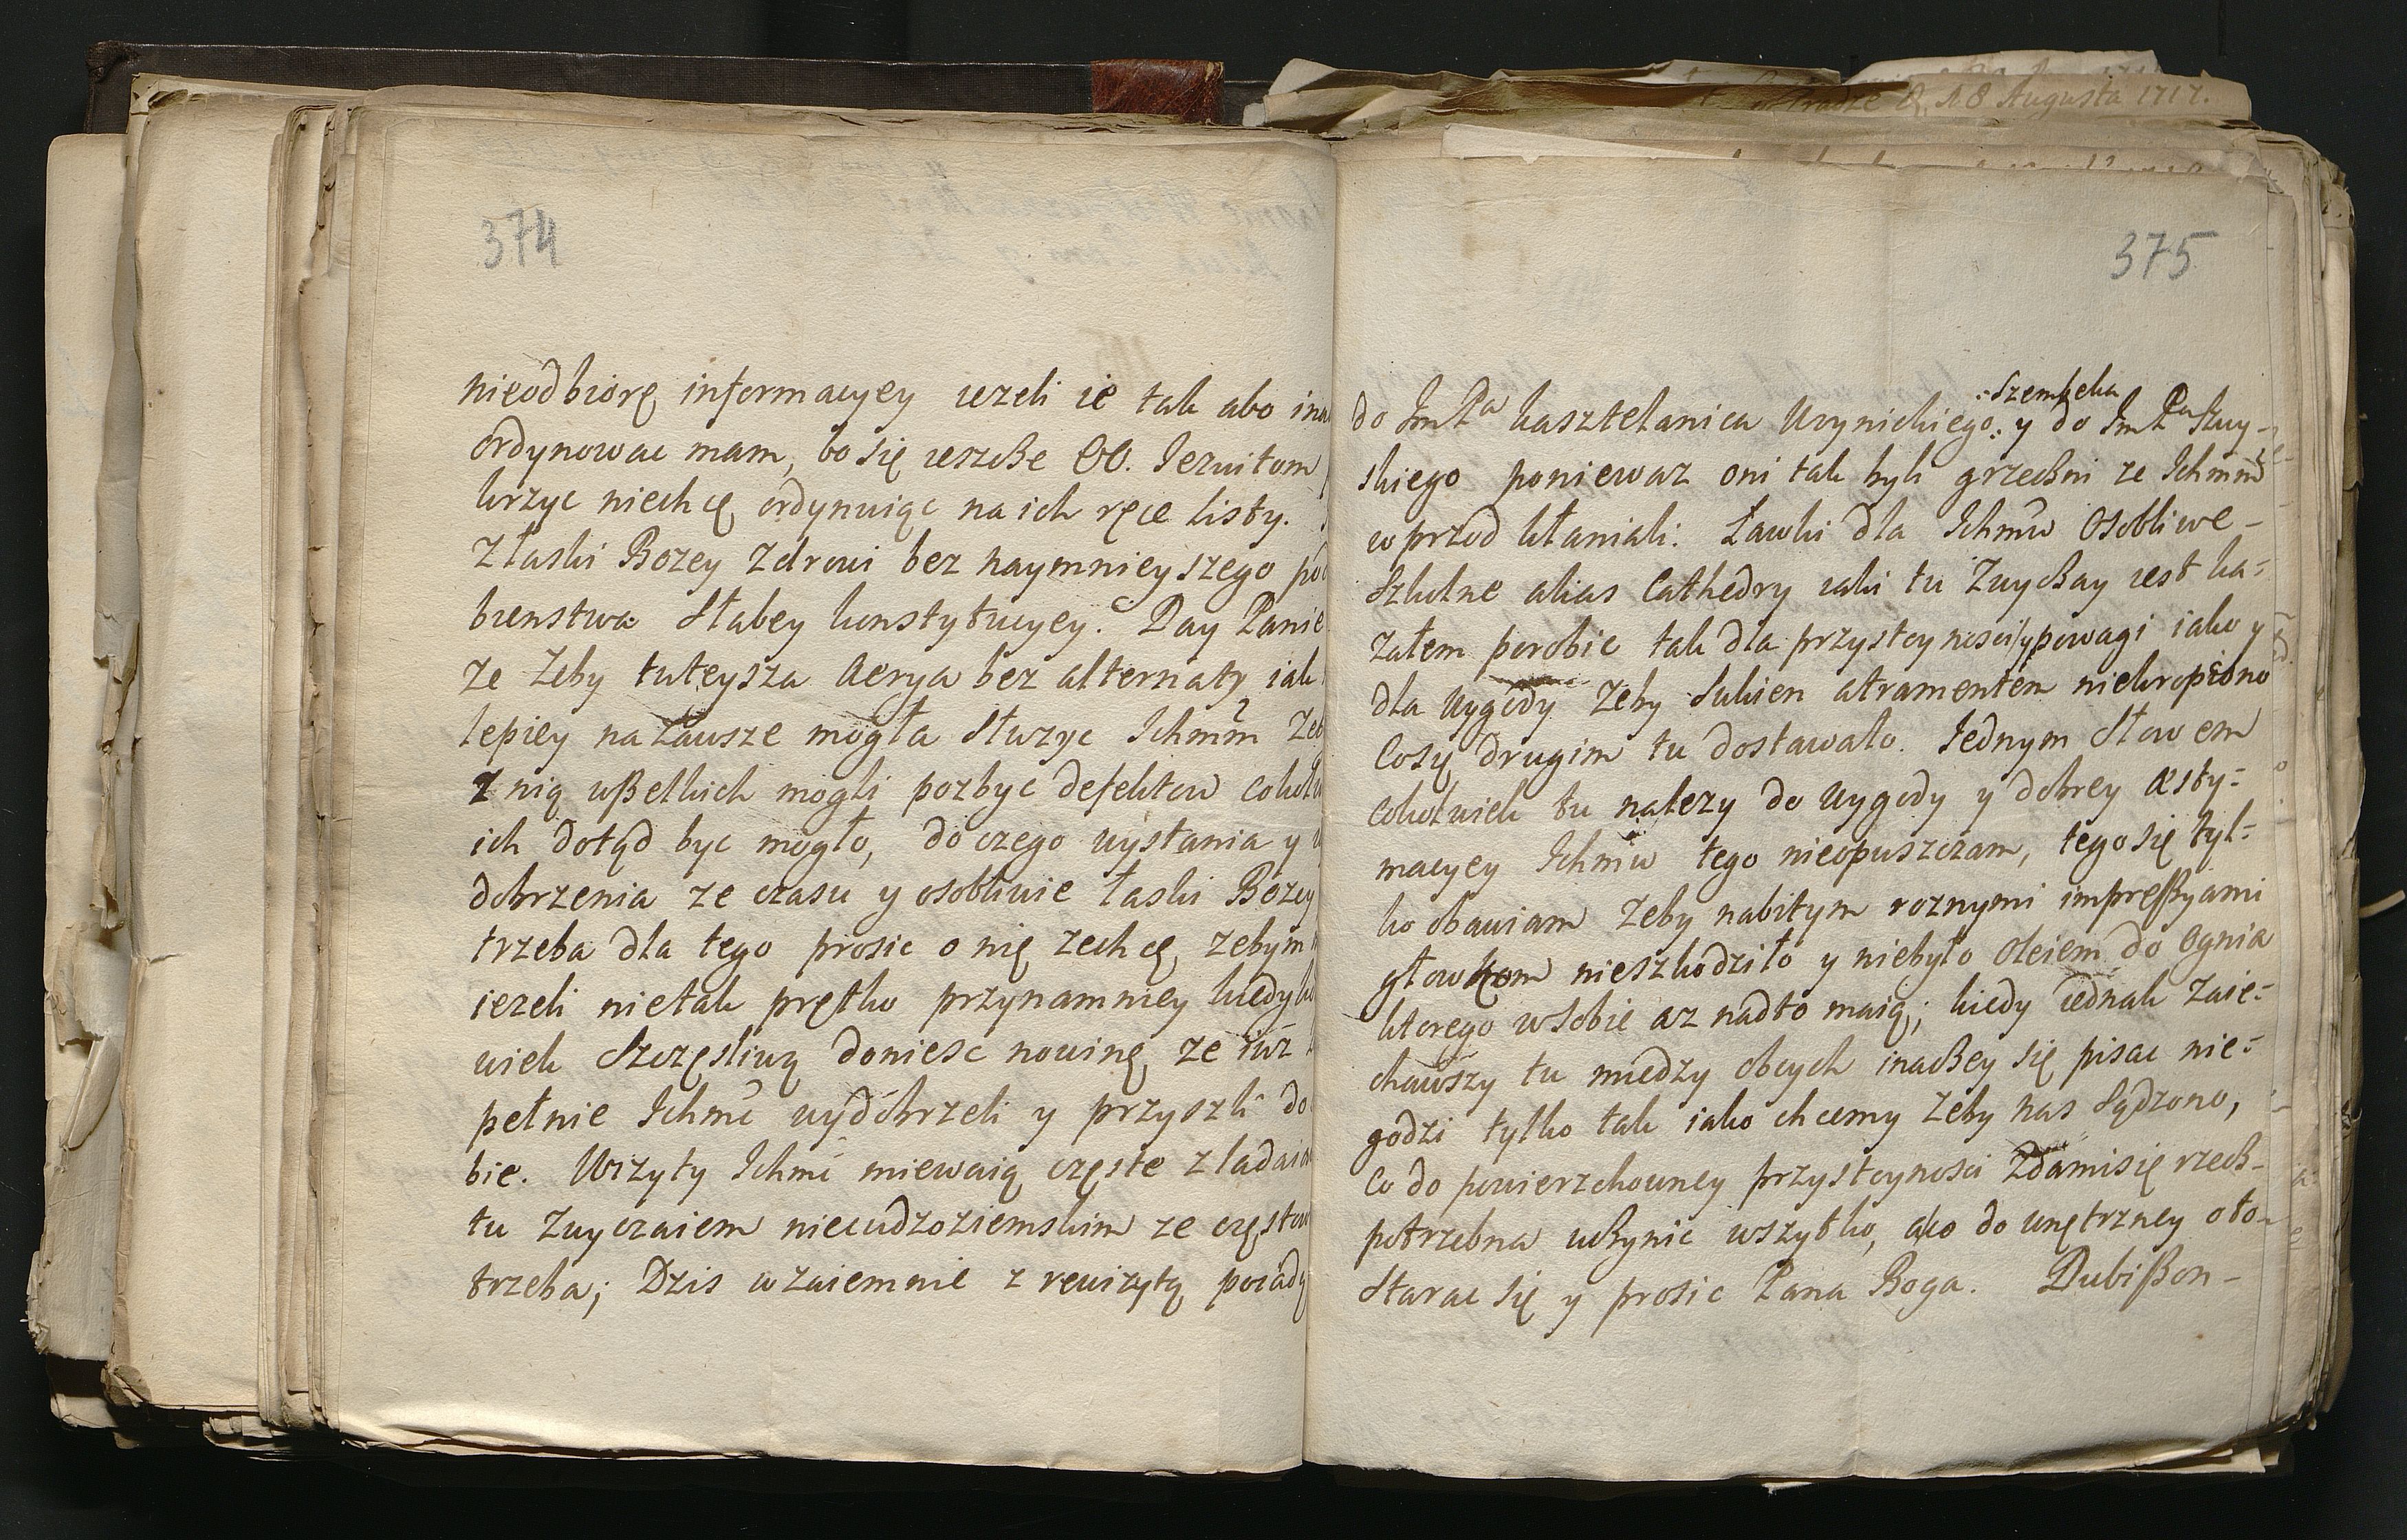 w Pradze d. 18 Augusta 1717.
374
nieodbiorę informacyey iezeli ie tak abo ina
ordynowac mam, bo się ieszcße OO. Iezuitom
krzyc niechcę ordynuiąc na ich ręce Listy.
Złaski Bozey zdrowi bez naymnieyszego po
bienstwa Słabey konstytucyey. Day Panie
ze zeby tuteysza Aerya bez alternaty iak
lepiey na zawsze mogła Słuzyc Ichmm zeb
z nią wßelkich mogli pozbyc defektow cokolw
ich dotąd byc mogło, do czego wysłania y w
dobrzenia ze czasu y osobliwie łaski Bozey
trzeba dla tego prosic o nię zechcę, zebym
iezeli nietak prętko przynamniey kiedyko
wiek Szczęsliwą doniesc nowinę, ze iuz
pełnie Ichmc wydobrzeli y przyszli do
bie. Wizyty Ichmc miewaią częste z ladaia
tu Zwyczaiem niecudzoziemskim ze często
trzeba; Dzis wzaiemnie z rewizytą poiady
375
do Jm Pa kasztelanica Wrynickiego :Szembeka: y do Jm Pa Szuy-
skiego poniewaz oni tak byli grzecßni ze Ichmm
w przod kłaniali. Ławki dla Ichmw Osobliwe-
Szkolne alias Cathedry iaki tu Zwycßay iest ka=
załem porobic tak dla przystoynosci y powagi iako y
dla Wygody Zeby Sukien atramentem niekropiono
Cosię drugim tu dostawało. Iednym Słowem
cokolwiek tu nalezy do Wygody y dobrey æsty=
macyey Ichmw tego nieopuszczam, tego się tyl=
ko obawiam Zeby nabitym roznymi impreßyami
głowkom nieszkodziło y niebyło Oleiem do Ognia
ktorego w Sobie az nadto maią; kiedy iednak Zaie=
chawszy tu między obcych inacßey się pisac nie=
godzi tylko tak iako chcemy Zeby nas Sądzono,
Co do powierzchowney przystoynosci Zdamisię rzecß-
potrzebna ucßynic wszytko, ako do wnętrzney oto-
Starac Się y prosic Pana Boga. Dubißon-